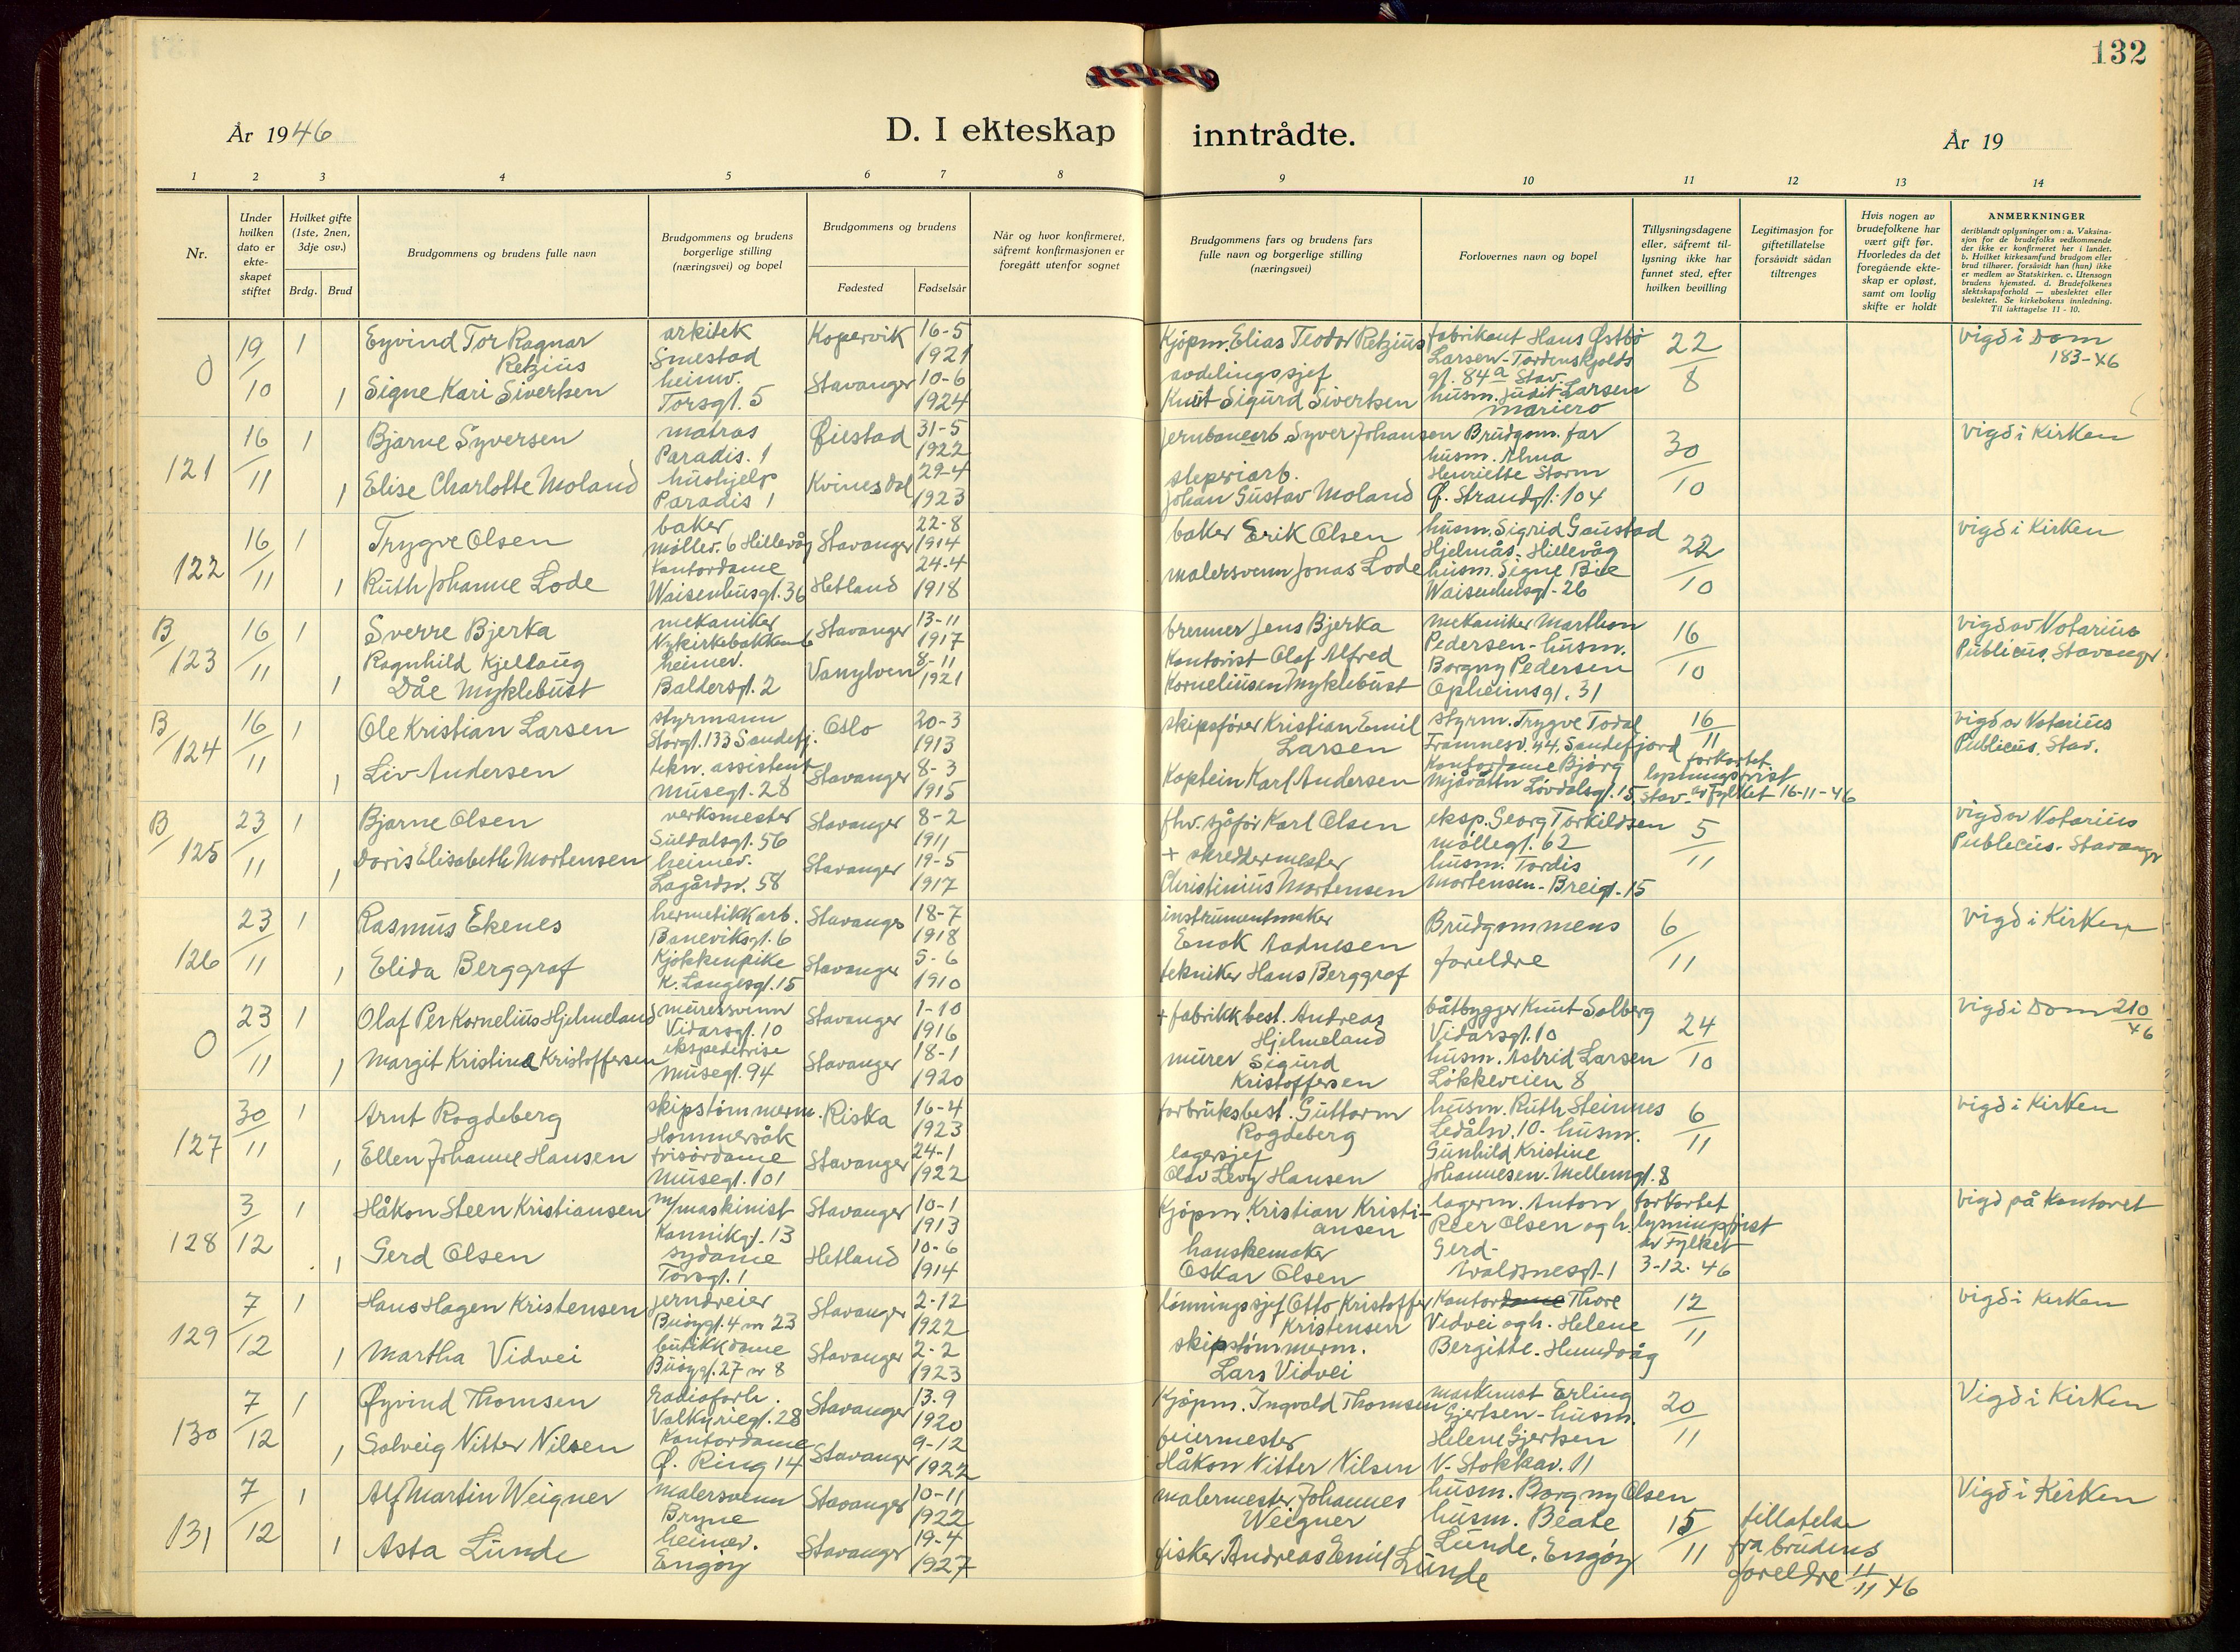 132
År 1946
D. I ekteskap inntrådte.
År 19
1 2 3 4 5 6 7 8 9 10 11 12 13 14
Nr.
Under hvilken dato er ekte-skapet stiftet
Hvilket gifte (1ste, 2nen, 3dje osv.)
Brdg. Brud
Brudgommens og brudens fulle navn
Brudgommens og brudens borgerlige stilling (næringsvei) og bopel
Brudgommens og brudens
Fødested Fødselsår
Når og hvor konfirmeret, såfremt konfirmasjonen er foregått utenfor sognet
Brudgommens fars og brudens fars fulle navn og borgerlige stilling (næringsvei)
Forlovernes navn og bopel
Tillysningsdagene eller, såfremt til-lysning ikke har funnet sted, efter hvilken bevilling
Legitimasjon for giftetillatelse forsåvidt sådan tiltrenges
Hvis nogen av brudefolkene har vært gift før. Hvorledes da det foregående ekte-skap er opløst, samt om lovlig skifte er holdt
ANMERKNINGER
deriblandt oplysninger om: a. Vaksina-sjon for de brudefolks vedkommende der ikke er konfirmeret her i landet. b. Hvilket kirkesamfund brudgom eller brud tilhører, forsåvidt han (hun) ikke er medlem av Statskirken. c. Utensogn brudens hjemsted. d. Brudefolkenes slektskapsforhold — ubeslektet eller beslektet. Se kirkebokens innledning. Til iakttagelse 11 - 10.
0 19/10 1 Eyvind Tor Ragnar Retzius arkitek Smestad Kopervik 16-5 1921 Kjøpm. Elias Teodor Retzius fabrikant Hans Østbø Larsen - Tordenskjolds gt. 84a Stav. 22/8 vigd i Dom 183-46
1 Signe Kari Sivertsen heimv. Torsgt. 5 Stavanger 10-6 1924 avdelingssjef Knut Sigurd Sivertsen husm. Judit Larsen Mariero
121 16/11 1 Bjarne Syversen matros Paradis. 1 Øiestad 31-5 1922 jernbanearb. Syver Johansen Brudgom. far 30/10 vigd i Kirken
1 Elise Charlotte Moland hushjelp Paradis 1 Kvinesdal 29-4 1923 sleperiarb. Johan Gustav Moland husm. Alma Henriette Storm Ø. Strandgt. 104
122 16/11 1 Trygve Olsen baker Møllev. 6 Hillevåg Stavanger 22-8 1914 baker Erik Olsen husm. Sigrid Gaustad Hjelmås. Hillevåg 22/10 vigd i Kirken
1 Ruth Johanne Lode Kontordame Waisenhusgt. 36 Hetland 24-4 1918 malersvenn Jonas Lode husm. Signe Bie Waisenhusgt. 26
B/123 16/11 1 Sverre Bjerka mekaniker Nykirkebakken 6 Stavanger 13-11 1917 brenner Jens Bjerka mekaniker Marthon Pedersen - husm. 16/10 vigd av Notarius Publicus, Stavanger
1 Ragnhild Kjellaug Dåe Myklebust heimev. Baldersgt. 2 Vanylven 8-11 1921 Kontorist Olaf Alfred Korneliusen Myklebust Borgny Pedersen Opheimsgt. 31
B/124 16/11 1 Ole Kristian Larsen styrmann Storgt. 133 Sandefj. Oslo 20-3 1913 skipsfører Kristian Emil Larsen styrm. Trygve Todal Framnesv. 44, Sandefjord 16/11 vigd av Notarius Publicus, Stav.
1 Liv Andersen tekn. assistent Musegt. 28 Stavanger 8-3 1915 Kaptein Karl Andersen Kontordame Bjørg Løvdalsgt. 15, Stav. forkortet lysningsfrist av Fylket 16-11-46
B/125 23/11 1 Bjarne Olsen verksmester Suldalsgt. 56 Stavanger 8-2 1911 fhv. sjåfør Karl Olsen eksp. Georg Torkildsen Møllegt. 62 5/11 vigd av Notarius Publicus. Stavanger
1 Doris Elisabeth Mortensen heimev. Lagårdsv. 58 Stavanger 19-5 1917 + skreddermester Christinius Mortensen husm. Tordis Mortensen - Breigt. 15
126 23/11 1 Rasmus Ekenes hermetikkarb. Banevíksgt. 6 Stavange 18-7 1918 instrumentmaker Enok Aadnesen Brudgommens foreldre 6/11 vigd i Kirken
1 Elida Berggraf Kjøkkenpike K. Langesgt. 15 Stavanger 5-6 1910 tekniker Hans Berggraf
0 23/11 1 Olaf Per Kornelius Hjelmeland murersvenn Vidarsgt. 10 Stavanger 1-10 1916 + fabrikkbest. Andreas Hjelmeland båtbygger Knut Solberg Vidarsgt. 10 24/10 vigd i Dom 210/46
1 Margit Kristine Kristoffersen ekspeditrise Musegt. 94 Stavanger 18-1 1920 murer Sigurd Kristoffersen husm. Astrid Larsen Løkkeveien 8
127 30/11 1 Arnt Rogdeberg skipstømmerm. Hommersåk Riska 16-4 1923 forbruksbest. Guttorm Rogdeberg husm. Ruth Steinnes Ledålsv. 10 - husm. 6/11 vigd i Kirken
1 Ellen Johanne Hansen frisørdame Musegt. 101 Stavanger 24-1 1922 lagersjef Olav Levy Hansen Gunhild Kristine Johannesen - Mellemgt. 8
128 3/12 1 Håkon Steen Kristiansen m/maskinist Kannikgt. 13 Stavanger 10-1 1913 Kjøpm. Kristian Kristiansen lagerm. Anton Peer Olsen og h. Gerd - forkortet lysningsfrist av Fylket 3-12-46 vigd på Kontoret
1 Gerd Olsen sydame Torsgt. 1 Hetland 10-6 1914 hanskemaker Oskar Olsen Waldsnesgt. 1
129 7/12 1 Hans Hagen Kristensen jerndreier Busøygt. 4 23 Stavanger 2-12 1922 lønningssjef Otto Kristoffer Kristensen Kontordame Thore Vidvei og h. Helene 12/11 vigd i Kirken
1 Martha Vidvei butikkdame Busøygt. 27 8 Stavanger 2-2 1923 skipstømmerm. Lars Vidvei Bergitte. Hundvåg
130 7/12 1 Øyvind Thomsen radioforh. Valkyriegt. 28 Stavanger 13.9 1920 Kjøpm. Ingvald Thomsen maskinist Erling Gjertsen - husm. 20/11 Vigd i Kirken
1 Solveig Nitter Nilsen Kontordame Ø. Ring 14 Stavanger 9-12 1922 feiermester Håkon Nitter Nilsen Helene Gjertsen V. Stokkav. 11
131 7/12 1 Alf Martin Weigner malersvenn Bryne Stavanger 10-11 1922 malermester Johannes Weigner husm. Borgny Olsen 15/11 Vigd i Kirken
1 Asta Lunde heimev. Engøy Stavanger 19-4 1927 fisker Andreas Emil Lunde husm. Beate Lunde, Engøy tillatelse fra brudens foreldre 11/11 46